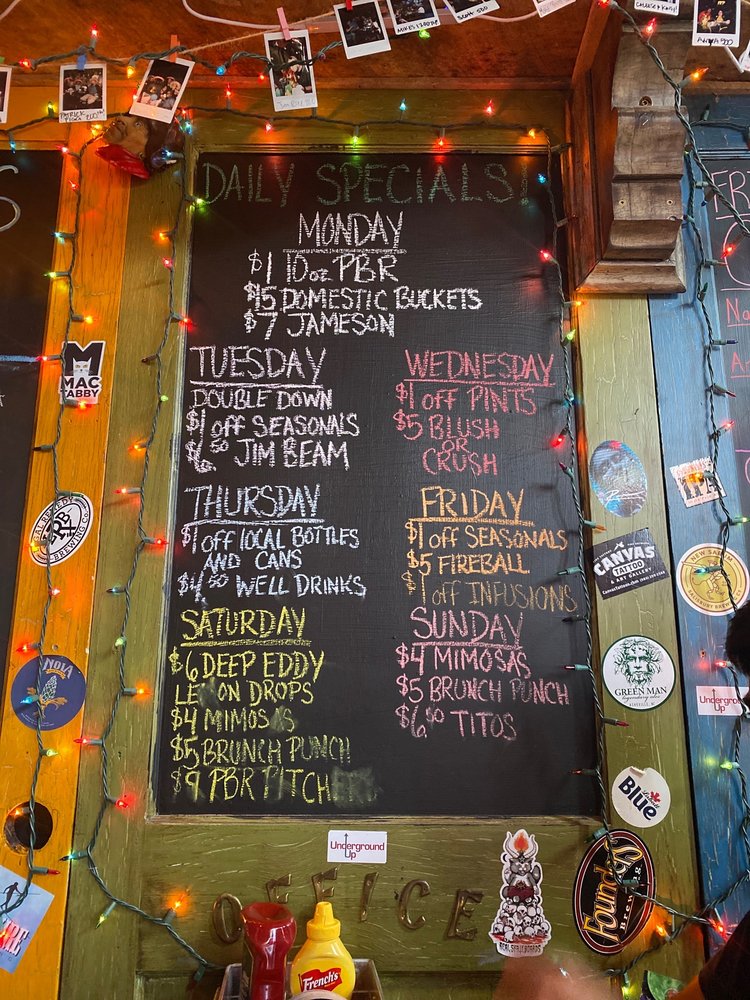 DAILY SPECIALS!
MONDAY
$1 10oz PBR
$15 DOMESTIC BUCKETS
$7 JAMESON
TUESDAY
DOUBLE DOWN
$1 off SEASONALS
$6.50 JIM BEAM
WEDNESDAY
$1 off PINTS
$5 BLUSH
OR
CRUSH
THURSDAY
$1 off LOCAL BOTTLES
AND CANS
$4.50 WELL DRINKS
FRIDAY
$1 off SEASONALS
$5 FIREBALL
$1 off INFUSIONS
SATURDAY
$6 DEEP EDDY
LEMON DROPS
$4 MIMOSAS
$5 BRUNCH PUNCH
$9 PBR PITCH
SUNDAY
$4 MIMOSAS
$5 BRUNCH PUNCH
$6.50 TITOS
MAC
TABBY
BREWING
NODA
CANVAS
TATTOO
& ART GALLERY
NEW SARUM
GREEN MAN
Underground
Up
Blue
Founders
Brewing
Underground
Up
OFFICE
French's